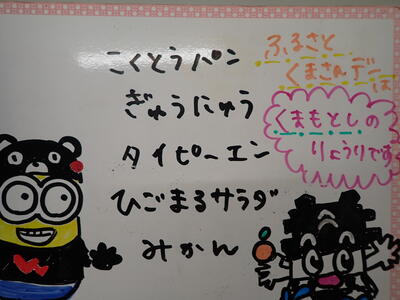 こくとうパン
ぎゅうにゅう
タイピーエン
ひごまるサラダ
みかん
ふるさと
くまさんデー
は
くまもとしの
りょうりです